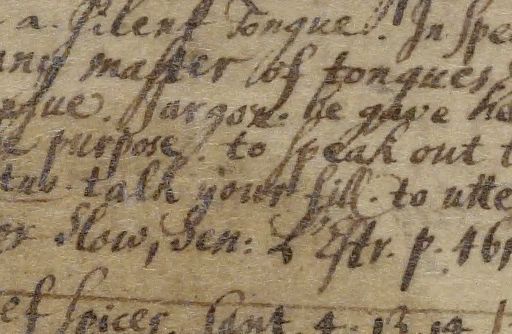 a. silent Tongue. In spe
any master of tongues
ngue. Jargon. he gave he
e purpose. to speak out t
talk your fill. to utte
er slow, Sen: L'Estr. p. 46
ef spices. Cant. 4. 13. 14